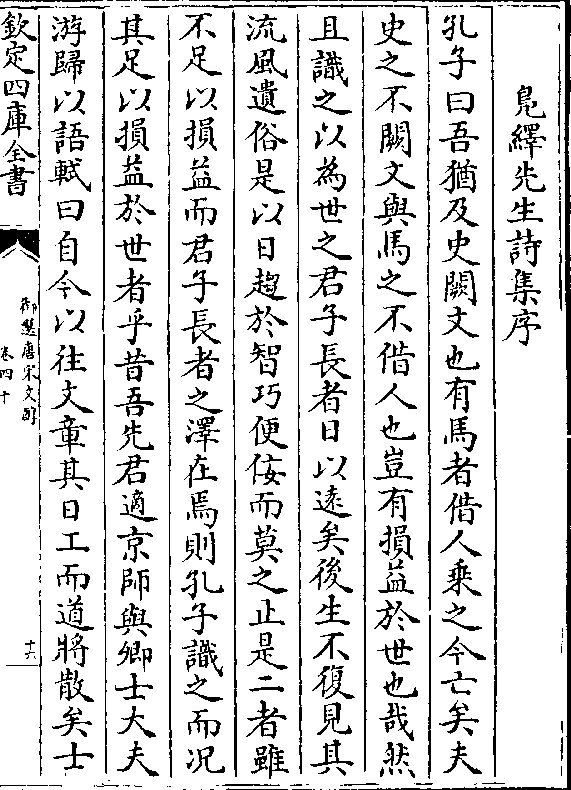 鳧繹先生詩集序
孔子曰吾猶及史闕文也有馬者借人乘之今亡矣夫
史之不闕文與馬之不借人也豈有損益於世也哉然
且識之以為世之君子長者日以遠矣後生不復見其
流風遺俗是以日趨於智巧便佞而莫之止是二者雖
不足以損益而君子長者之澤在焉則孔子識之而况
其足以損益於世者乎昔吾先君適京師與卿士大夫
游歸以語軾曰自今以往文章其日工而道將散矣士
欽定四庫全書
御選唐宋文醇
卷四十
十六